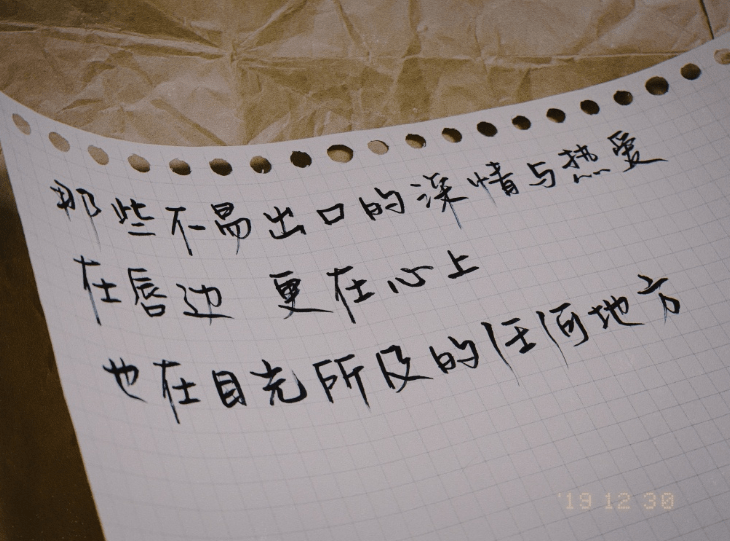 那些不易出口的深情与热爱
在唇边 更在心上
也在目光所及的任何地方
'19 12 30